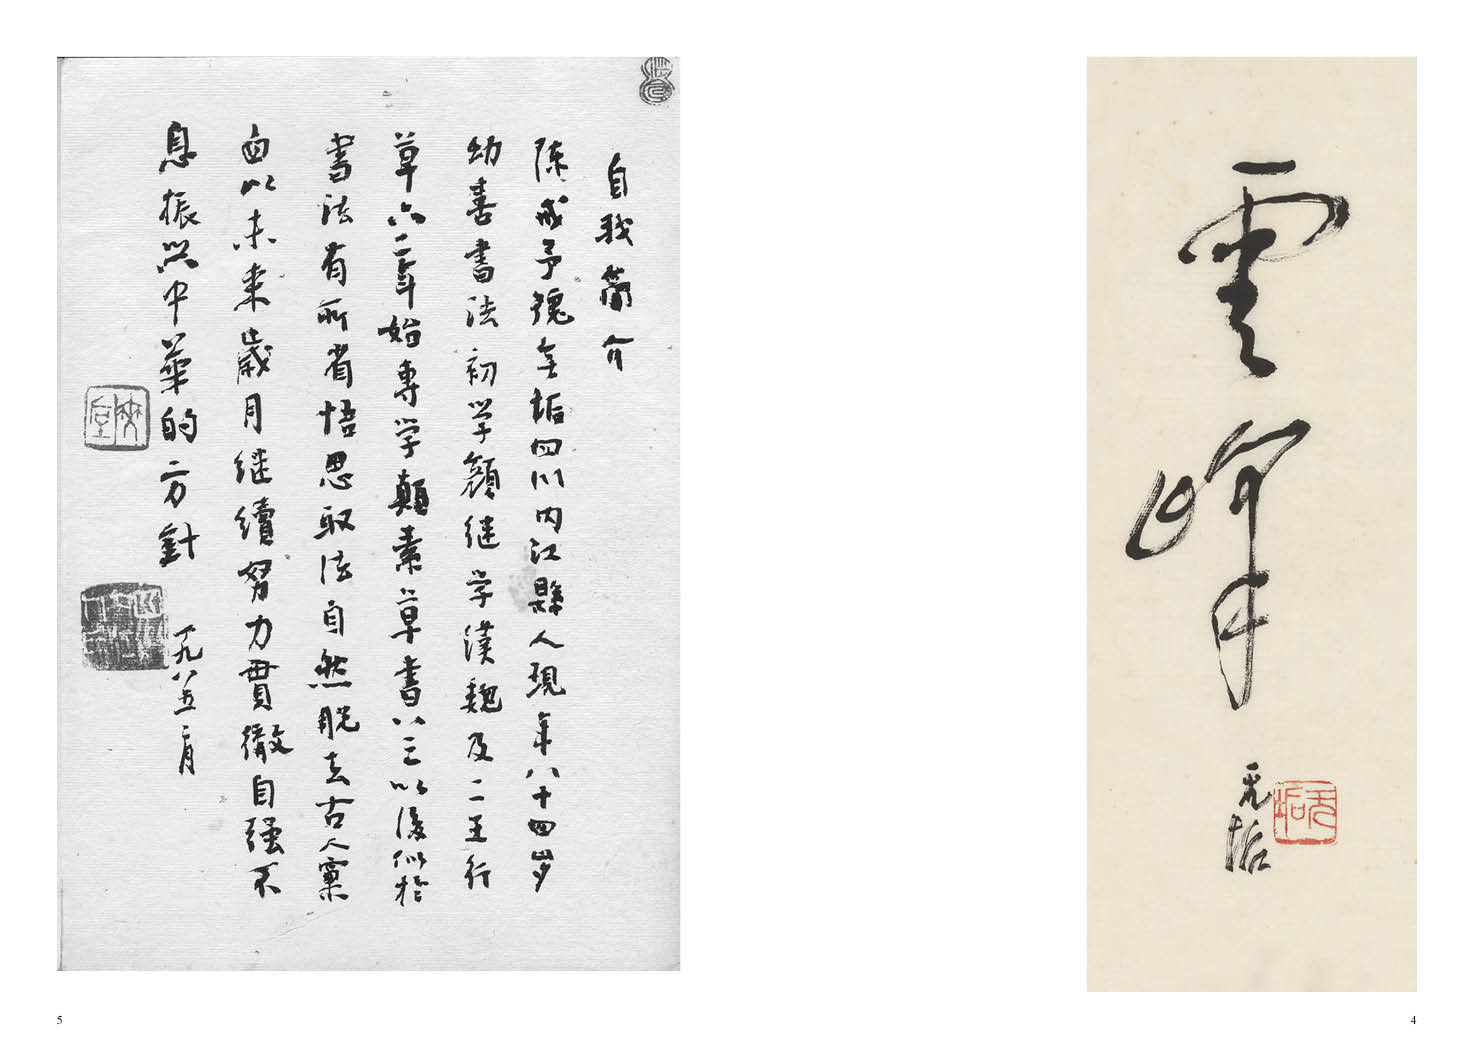 雲峰
无垢
无垢
自我簡介
陈戒予號無垢四川内江縣人現年八十四岁
幼喜書法初学顔继学漢魏及二王行
草六二年始專学顛素草書八三以後似於
書法有所省悟思取法自然脱去古人窠
臼以未来歲月继續努力貫徹自强不
息振兴中華的方針
一九八五、二月
4
5